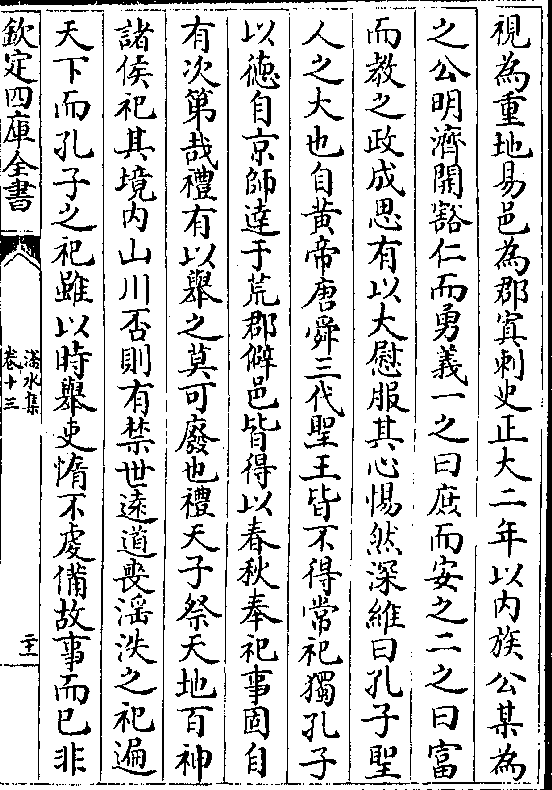 視為重地易邑為郡寘刺史正大二年以内族公某為
之公明濟開豁仁而勇義一之曰庶而安之二之曰富
而教之政成思有以大慰服其心惕然深維曰孔子聖
人之大也自黄帝唐舜三代聖王皆不得常祀獨孔子
以徳自京師達于荒郡僻邑皆得以春秋奉祀事固自
有次第哉禮有以舉之莫可廢也禮天子祭天地百神
諸侯祀其境内山川否則有禁世逺道喪滛泆之祀遍
天下而孔子之祀雖以時舉吏惰不䖍備故事而已非
欽定四庫全書
滏水集
卷十三
二十一